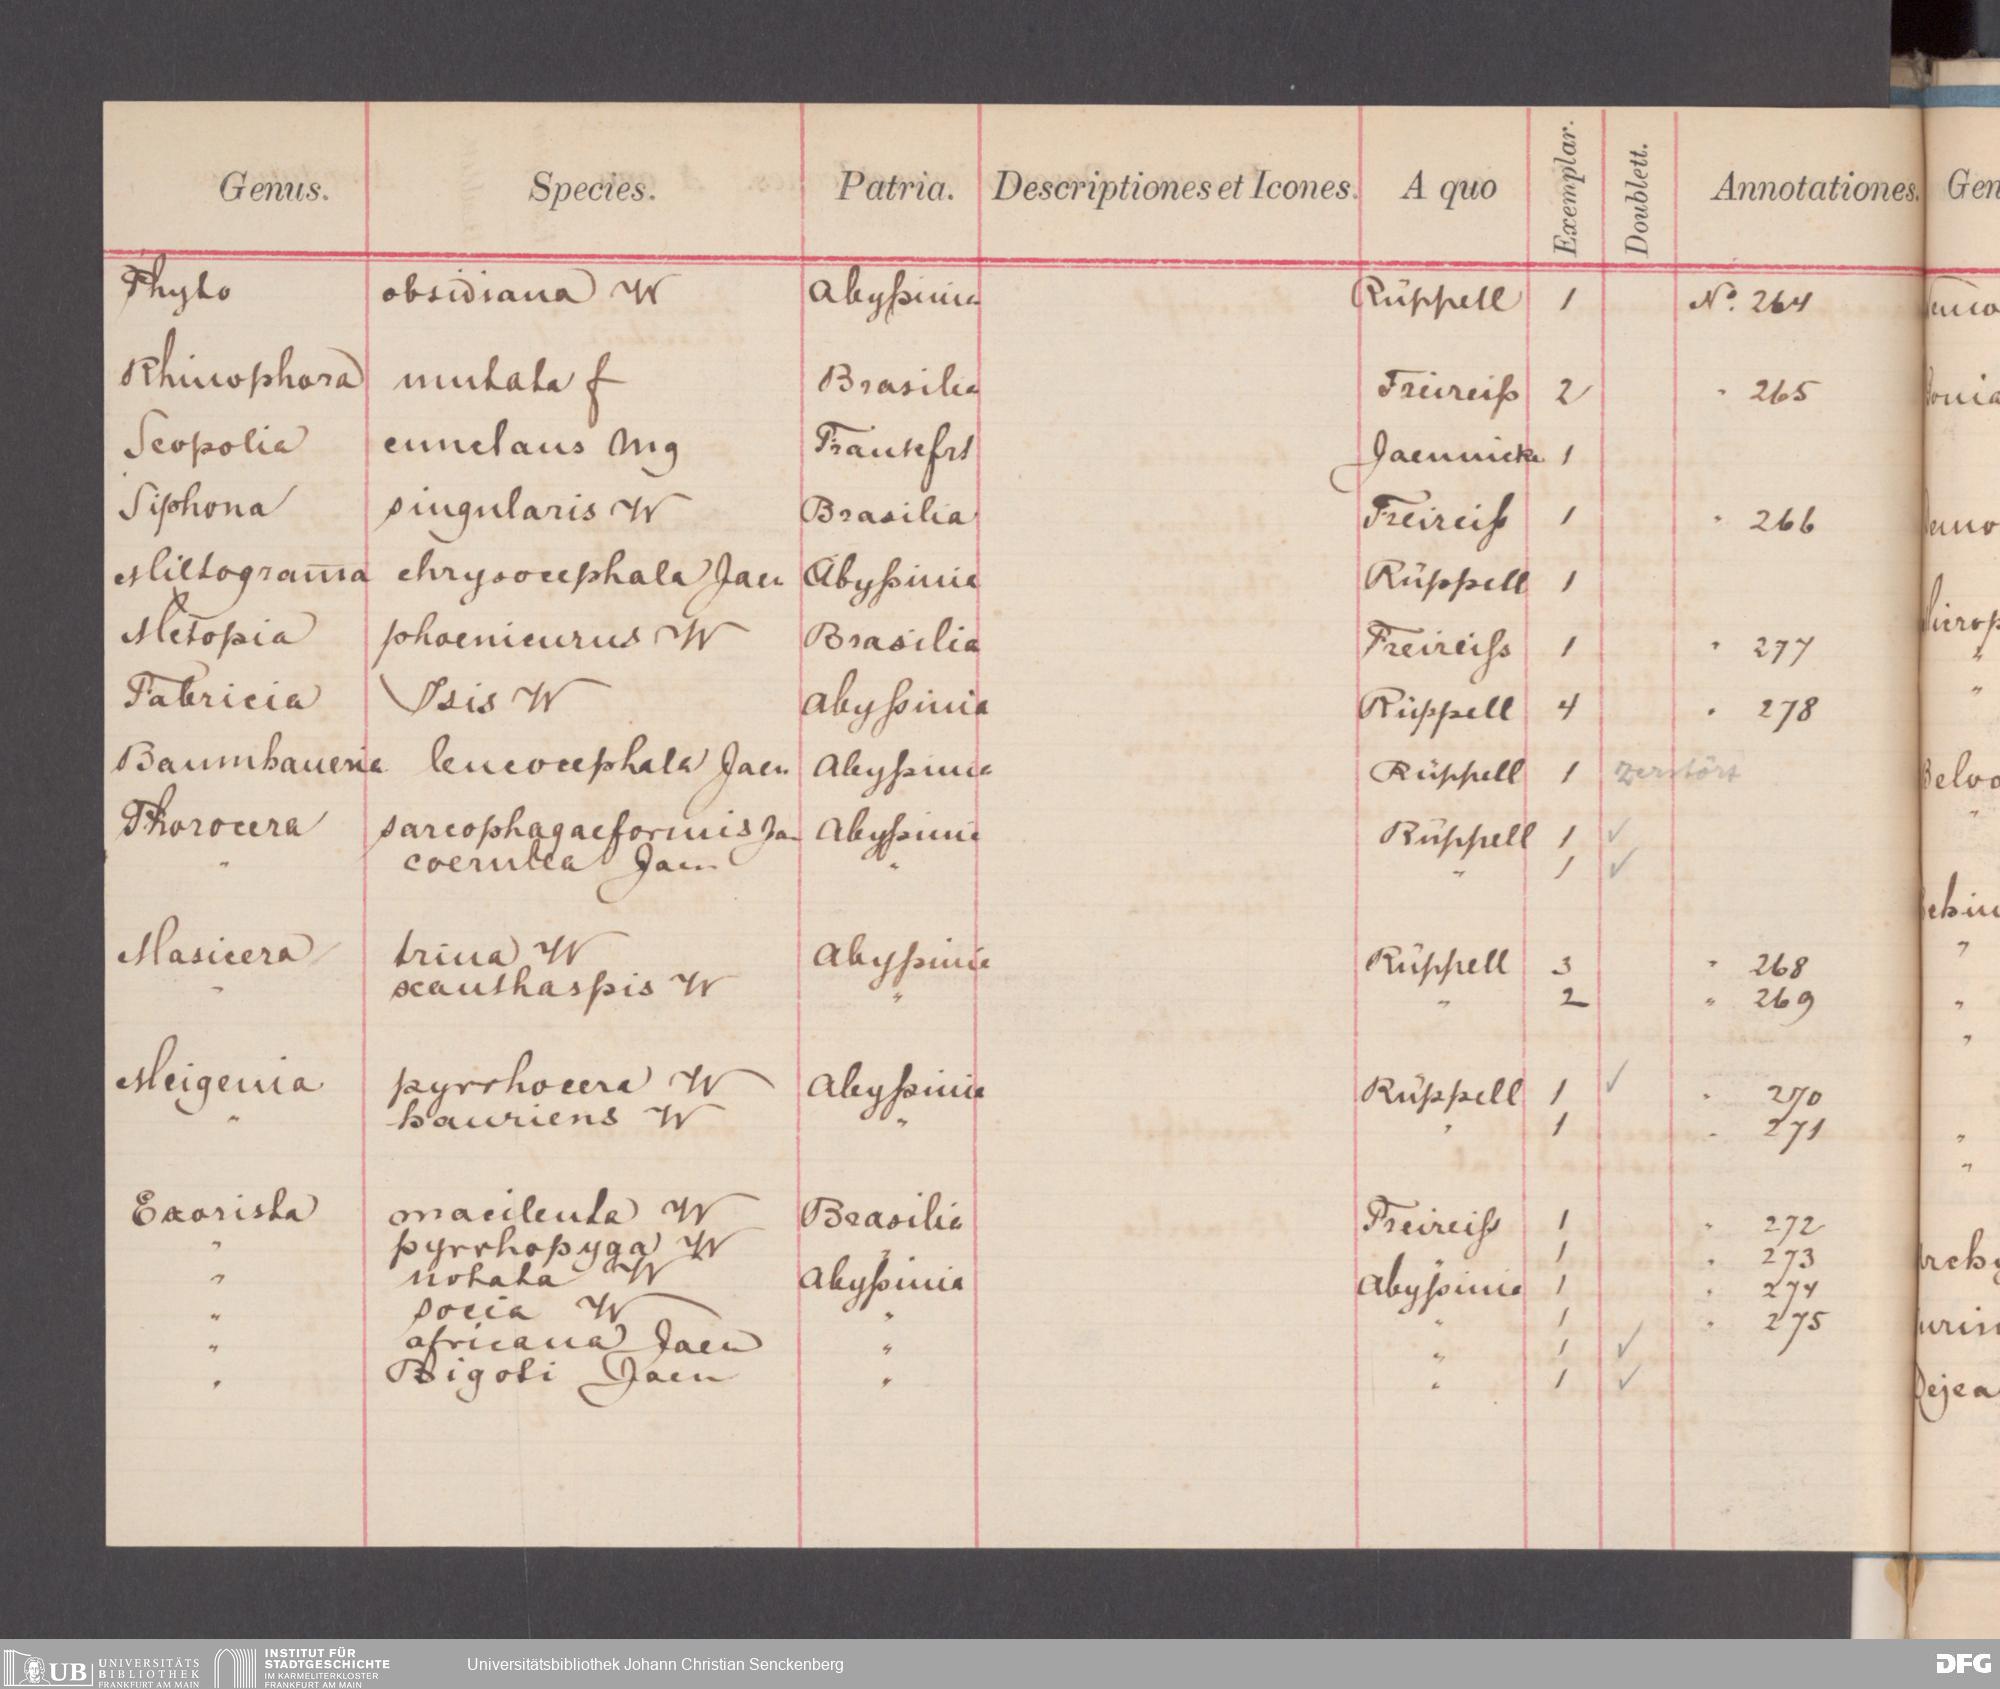 Genus. Species. Patria. Descriptiones et Icones. A quo Exemplar. Doublett. Annotationes. Gen
Phyto obsidiana W Abyßinia Rüppell 1 No. 264
Rhinophora mutata f Brasilia Freireiß 2 " 265
Scopolia cunctans Mg Frankfrt Jaennicke 1
Siphona singularis W Brasilia Freireiß 1 " 266
Miltogram̄a chrysocephala Jaen Abyßinia Rüppell 1
Metopia phoenicurus W Brasilia Freireiss 1 " 277
Fabricia Isis W Abyßinia Rüppell 4 " 278
Baumhaueria leucocephala Jaen Abyßinia Rüppell 1 zerstört
Phorocera sarcophagaeformis Jae Abyßinia Rüppell 1 ✓
" coerulea Jaen " " 1 ✓
Masicera trina W Abyßinia Rüppell 3 " 268
" xanthaspis W " " 2 " 269
Meigenia pyrrhocera W Abyßinia Rüppell 1 ✓ " 270
" hauriens W " " 1 " 271
Exorista macilenta W Brasilia Freireiß 1 " 272
" pyrrhopyga W " " 1 " 273
" notata W Abyßinia Abyßinia 1 " 274
" socia W " " 1 " 275
" africana Jaen " " 1 ✓
" Bigoti Jaen " " 1 ✓
UB UNIVERSITÄTS
BIBLIOTHEK
FRANKFURT AM MAIN
INSTITUT FÜR
STADTGESCHICHTE
IM KARMELITERKLOSTER
FRANKFURT AM MAIN
Universitätsbibliothek Johann Christian Senckenberg
DFG